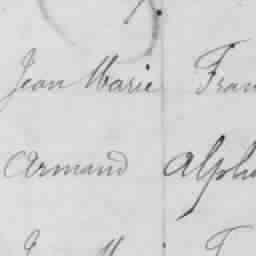 Jean Marie Fran
Armand Alph